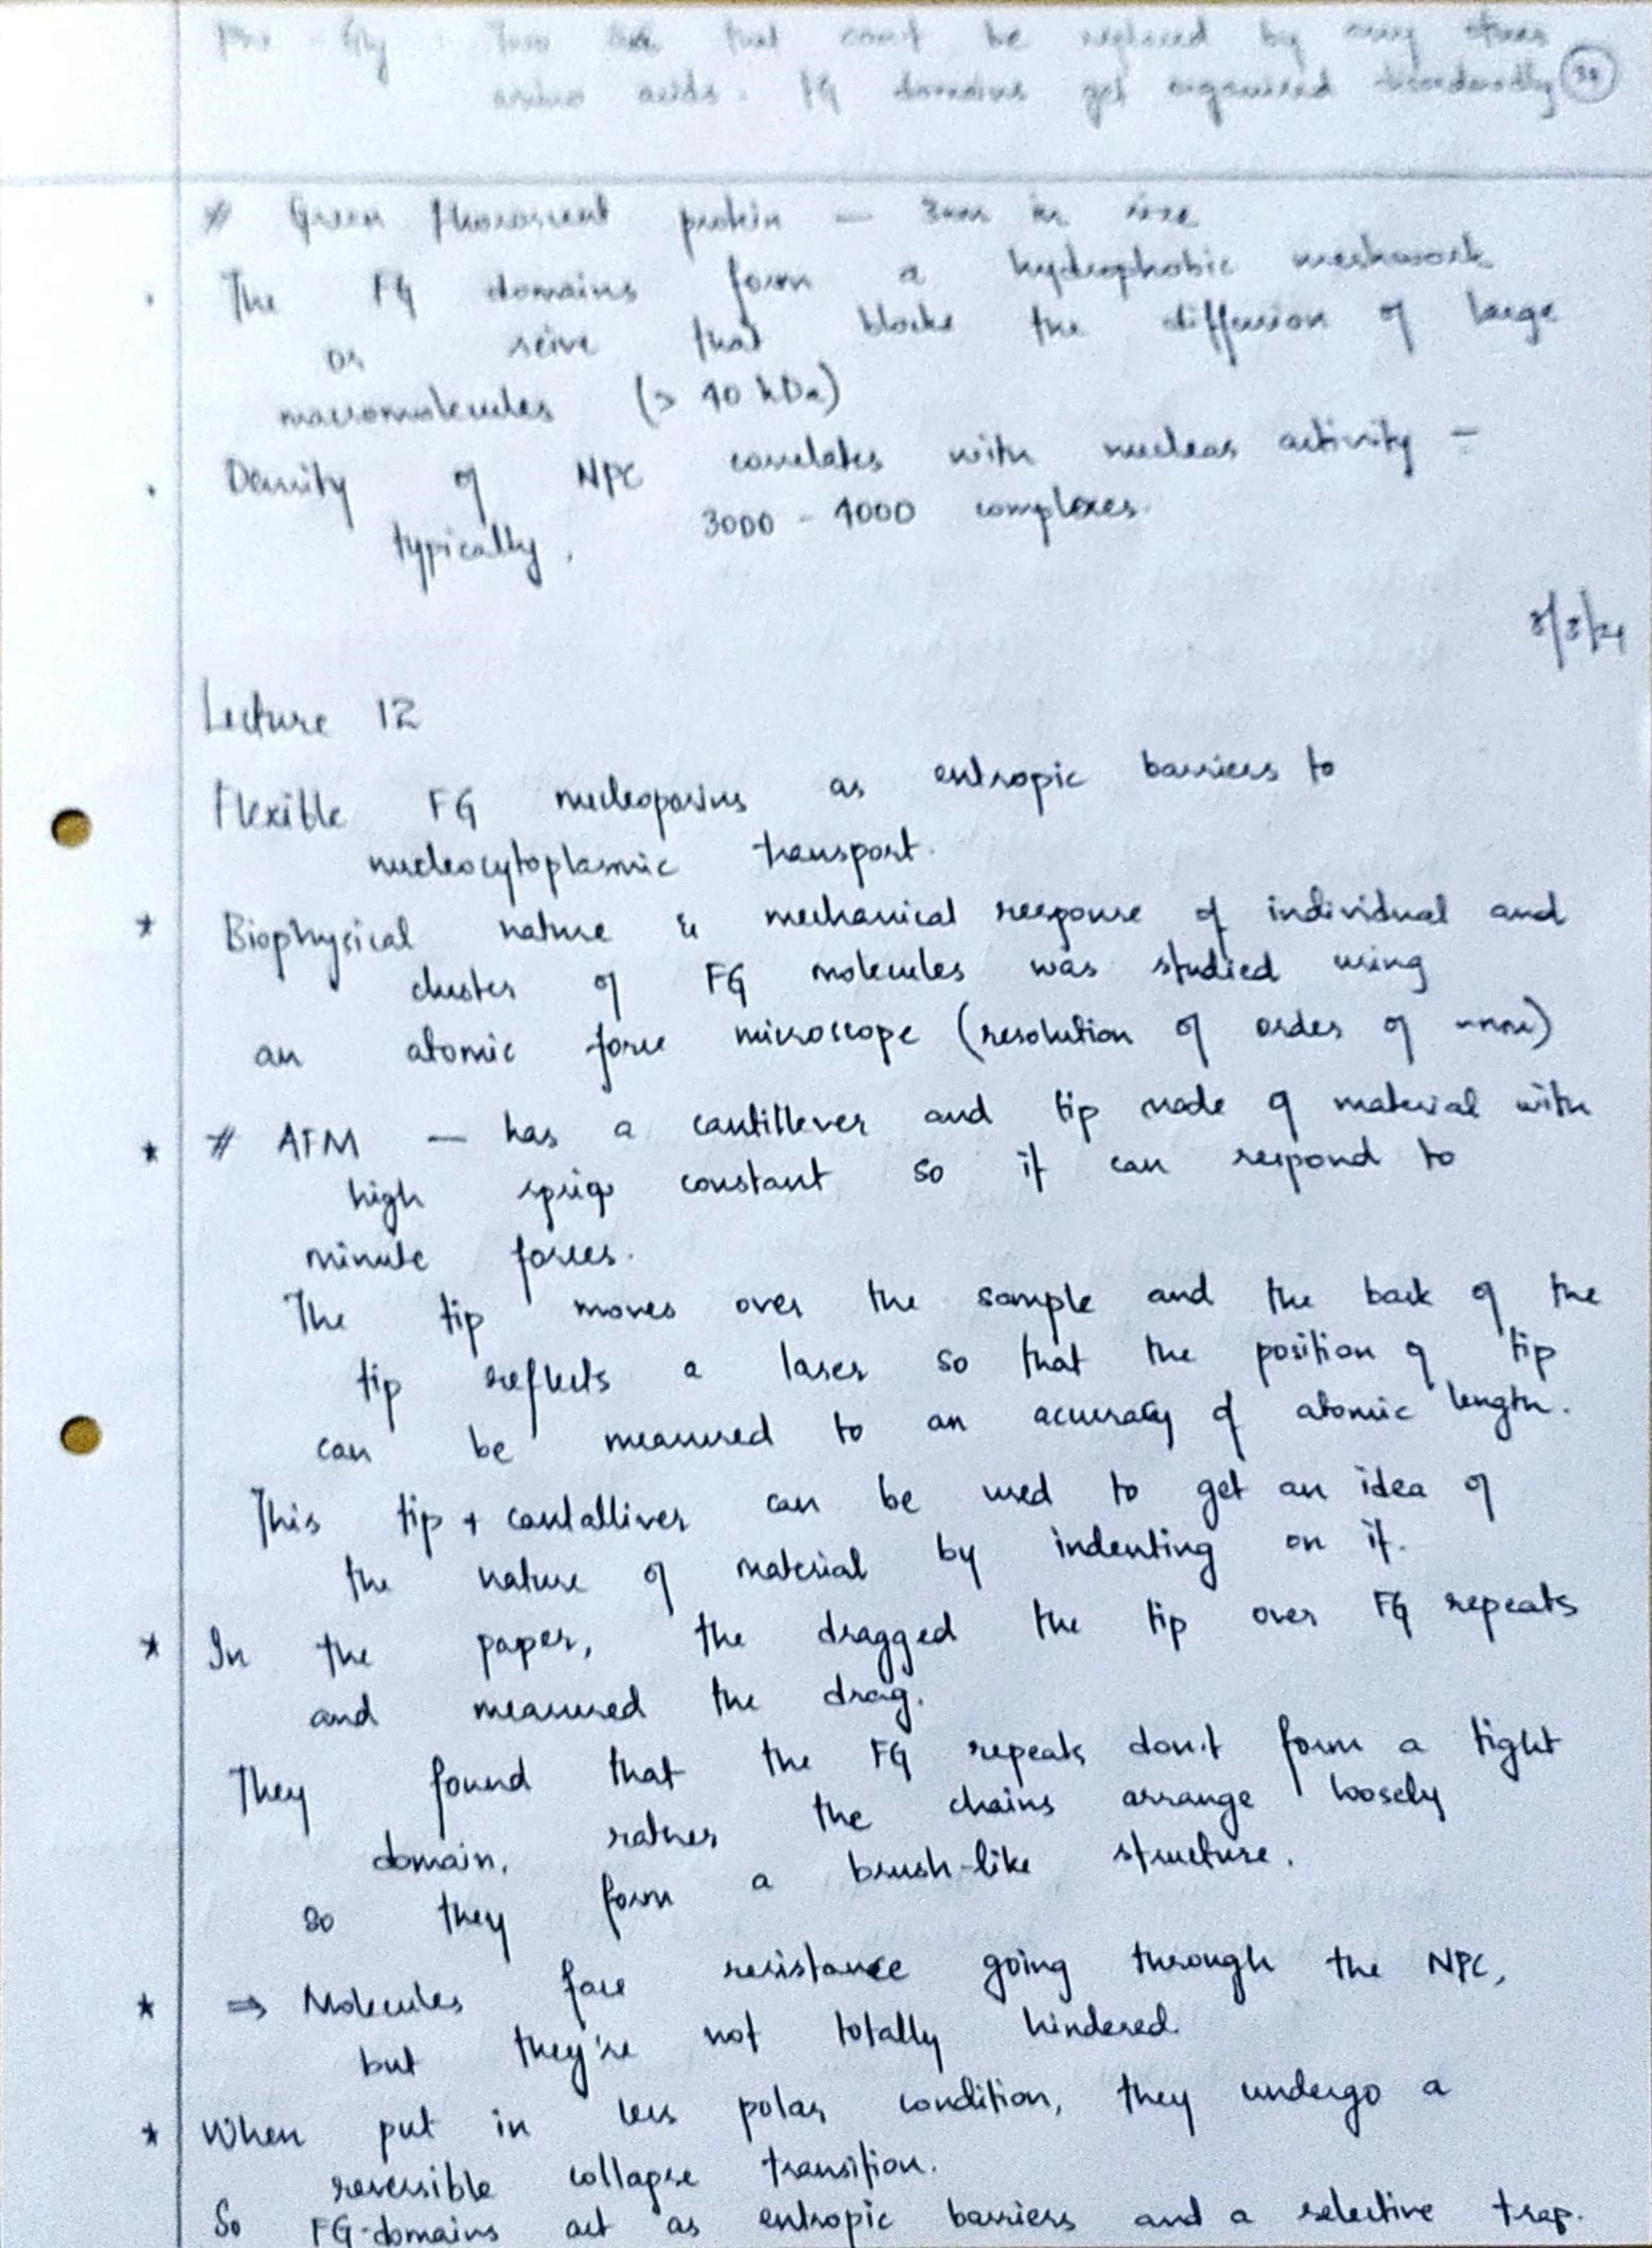 Phe - Gly : Two that can't be replaced by any other
amino acids. FG domains get organised disorderedly 38
# Green fluorescent protein — 3nm in size
. The FG domains form a hydrophobic meshwork
or seive that blocks the diffusion of large
macromolecules (> 40 kDa)
. Density of NPC correlates with nuclear activity -
typically, 3000 - 4000 complexes.
8/3/24
Lecture 12
Flexible FG nucleoporins as entropic barriers to
nucleocytoplasmic transport.
* Biophysical nature & mechanical response of individual and
cluster of FG molecules was studied using
an atomic force microscope (resolution of order of ~nm)
* # AFM — has a cantillever and tip made of material with
high constant so it can respond to
minute forces.
The tip moves over the sample and the back of the
tip reflects a laser so that the position of tip
can be measured to an accuracy of atomic length.
This tip + cantalliver can be used to get an idea of
the nature of material by indenting on it.
* In the paper, the dragged the tip over FG repeats
and measured the drag.
They found that the FG repeats don't form a tight
domain, rather the chains arrange loosely
so they form a brush-like structure.
* ⇒ Molecules face resistance going through the NPC,
but they're not totally hindered.
* When put in less polar condition, they undergo a
reversible collapse transition.
So FG-domains act as entropic barriers and a selective trap.